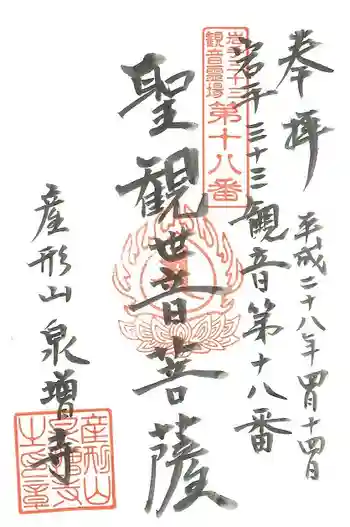 奉拝
平成二十八年四月十四日
岩手三十三観音第十八番
岩手三十三
観音霊場
第十八番
聖観世音菩薩
産形山 泉増寺